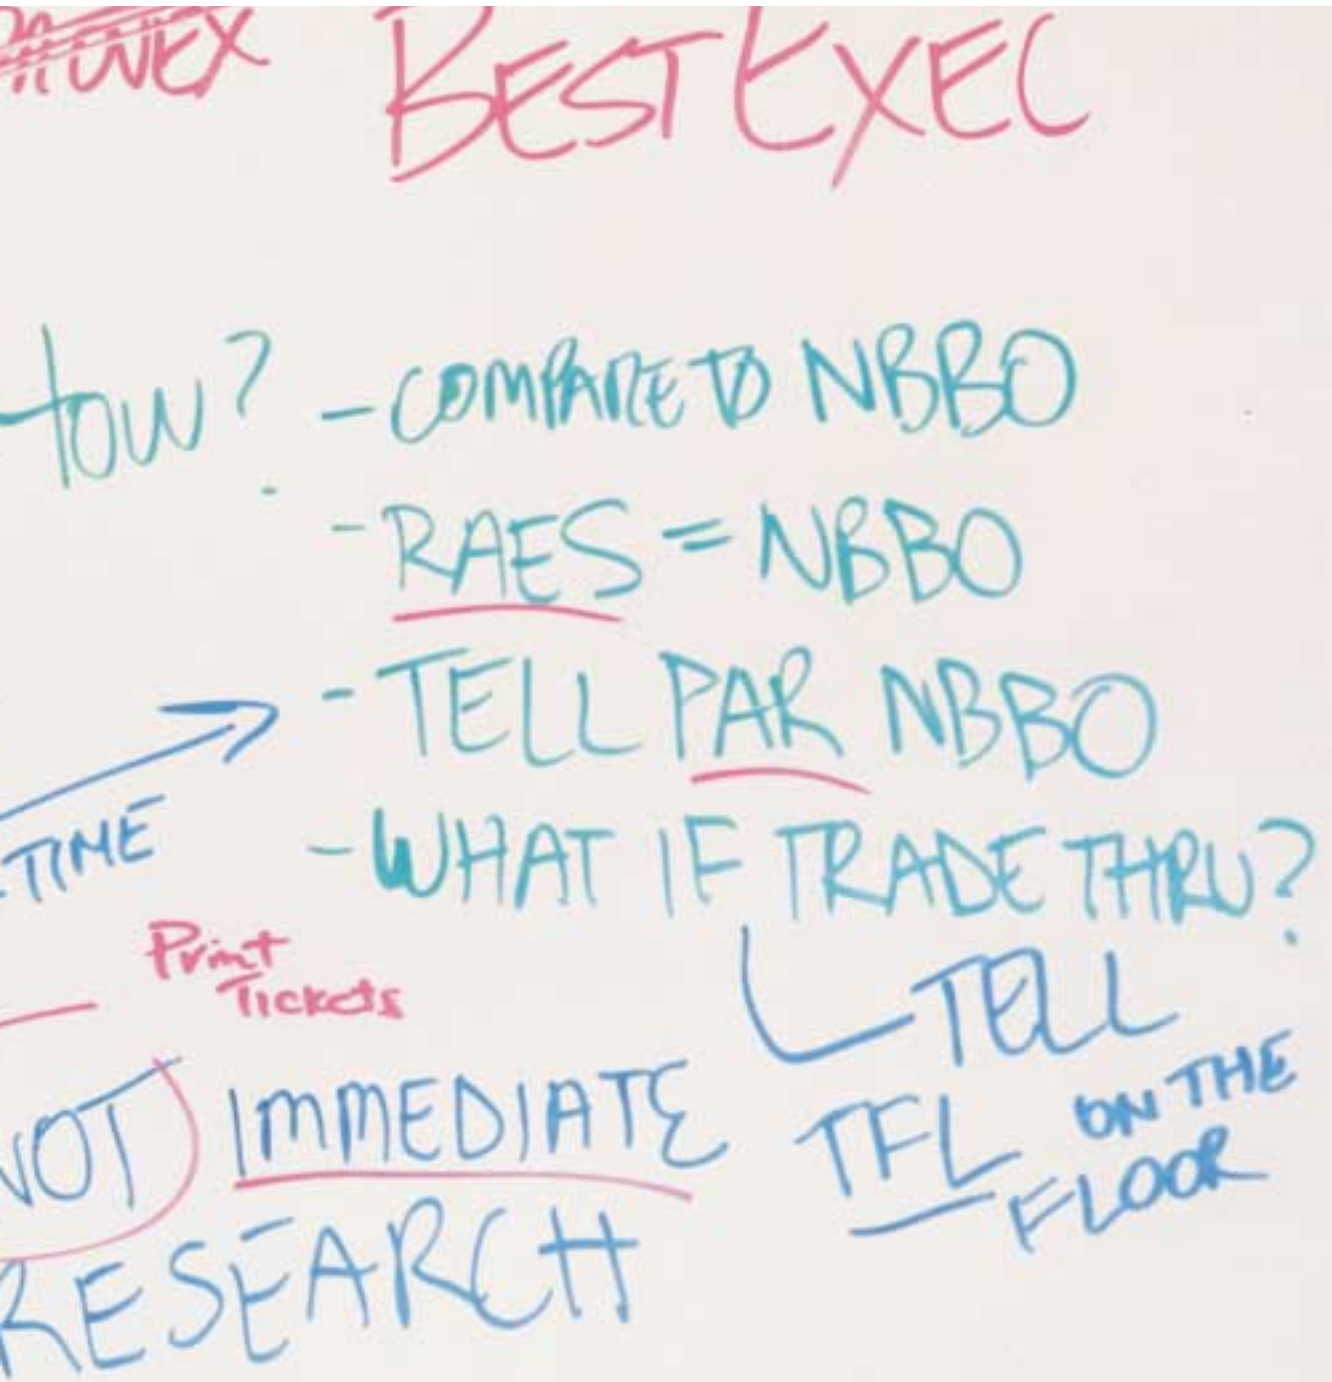 BEST EXEC
HOW? - COMPARE TO NBBO
- RAES = NBBO
- TELL PAR NBBO
TIME
- WHAT IF TRADE THRU?
Print
Tickets
TELL
TFL ON THE
FLOOR
NOT IMMEDIATE
RESEARCH